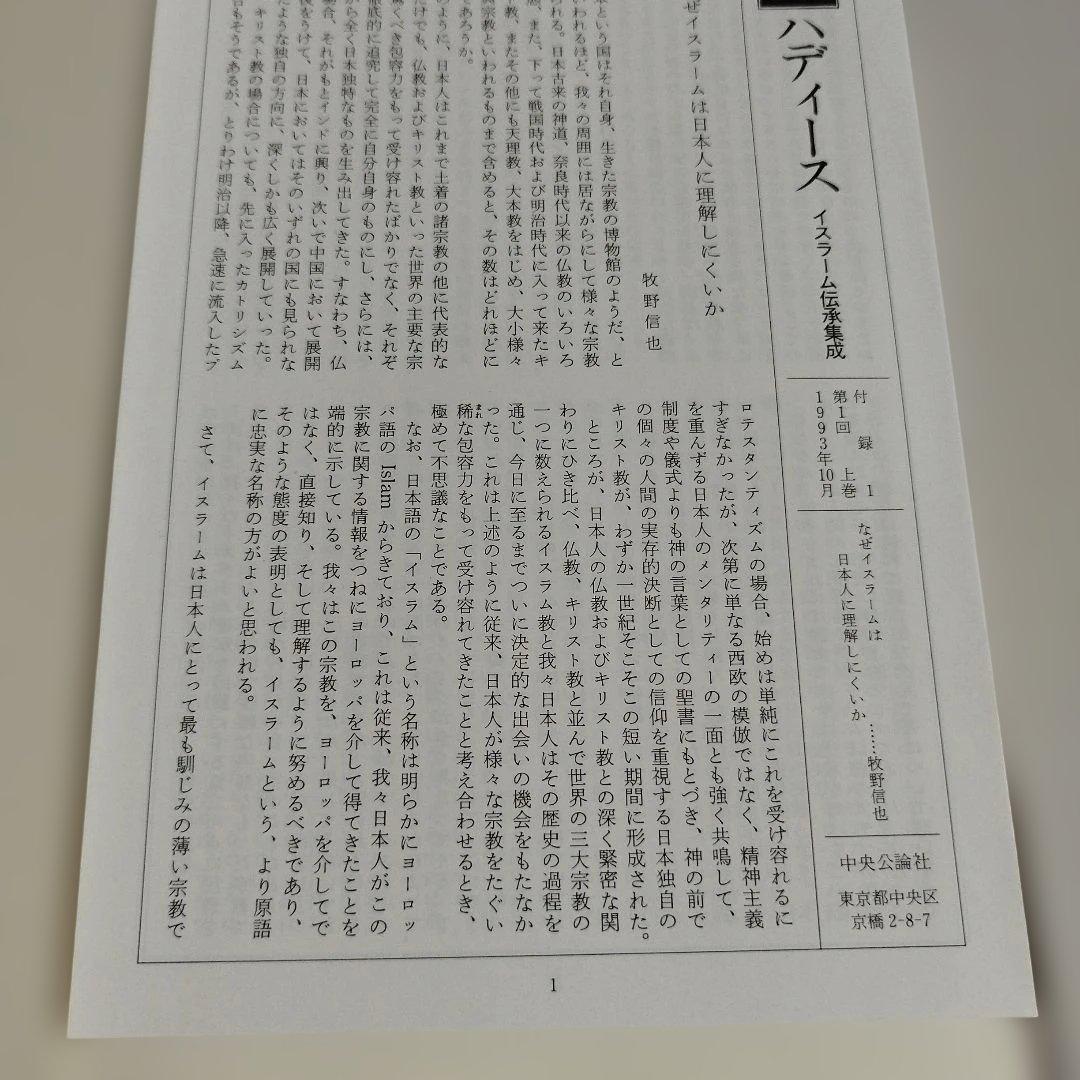 ハディース イスラーム伝承集成
付録 1
第1回 上巻
1993年10月
なぜイスラームは
日本人に理解しにくいか ……牧野信也
中央公論社
東京都中央区
京橋2-8-7
ぜイスラームは日本人に理解しにくいか
牧野信也
という国はそれ自身、生きた宗教の博物館のようだ、と
いわれるほど、我々の周囲には居ながらにして様々な宗教
られる。日本古来の神道、奈良時代以来の仏教のいろいろ
また、下って戦国時代および明治時代に入って来たキ
教、またその他にも天理教、大本教をはじめ、大小様々
宗教といわれるものまで含めると、その数はどれほどに
であろうか。
のように、日本人はこれまで土着の諸宗教の他に代表的な
だけでも、仏教およびキリスト教といった世界の主要な宗
くべき包容力をもって受け容れたばかりでなく、それぞ
底的に追究して完全に自分自身のものにし、さらには、
から全く日本独特なものを生み出してきた。すなわち、仏
場合、それがもとインドに興り、次いで中国において展開
をうけて、日本においてはそのいずれの国にも見られな
たような独自の方向に、深くしかも広く展開していった。
キリスト教の場合についても、先に入ったカトリシズム
合もそうであるが、とりわけ明治以降、急速に流入したプ
ロテスタンティズムの場合、始めは単純にこれを受け容れるに
すぎなかったが、次第に単なる西欧の模倣ではなく、精神主義
を重んずる日本人のメンタリティーの一面とも強く共鳴して、
制度や儀式よりも神の言葉としての聖書にもとづき、神の前で
の個々の人間の実存的決断としての信仰を重視する日本独自の
キリスト教が、わずか一世紀そこそこの短い期間に形成された。
ところが、日本人の仏教およびキリスト教との深く緊密な関
わりにひき比べ、仏教、キリスト教と並んで世界の三大宗教の
一つに数えられるイスラム教と我々日本人はその歴史の過程を
通じ、今日に至るまでついに決定的な出会いの機会をもたなか
った。これは上述のように従来、日本人が様々な宗教をたぐい
稀な包容力をもって受け容れてきたことと考え合わせるとき、
極めて不思議なことである。
なお、日本語の「イスラム」という名称は明らかにヨーロッ
パ語の Islam からきており、これは従来、我々日本人がこの
宗教に関する情報をつねにヨーロッパを介して得てきたことを
端的に示している。我々はこの宗教を、ヨーロッパを介してで
はなく、直接知り、そして理解するように努めるべきであり、
そのような態度の表明としても、イスラームという、より原語
に忠実な名称の方がよいと思われる。
さて、イスラームは日本人にとって最も馴じみの薄い宗教で
1